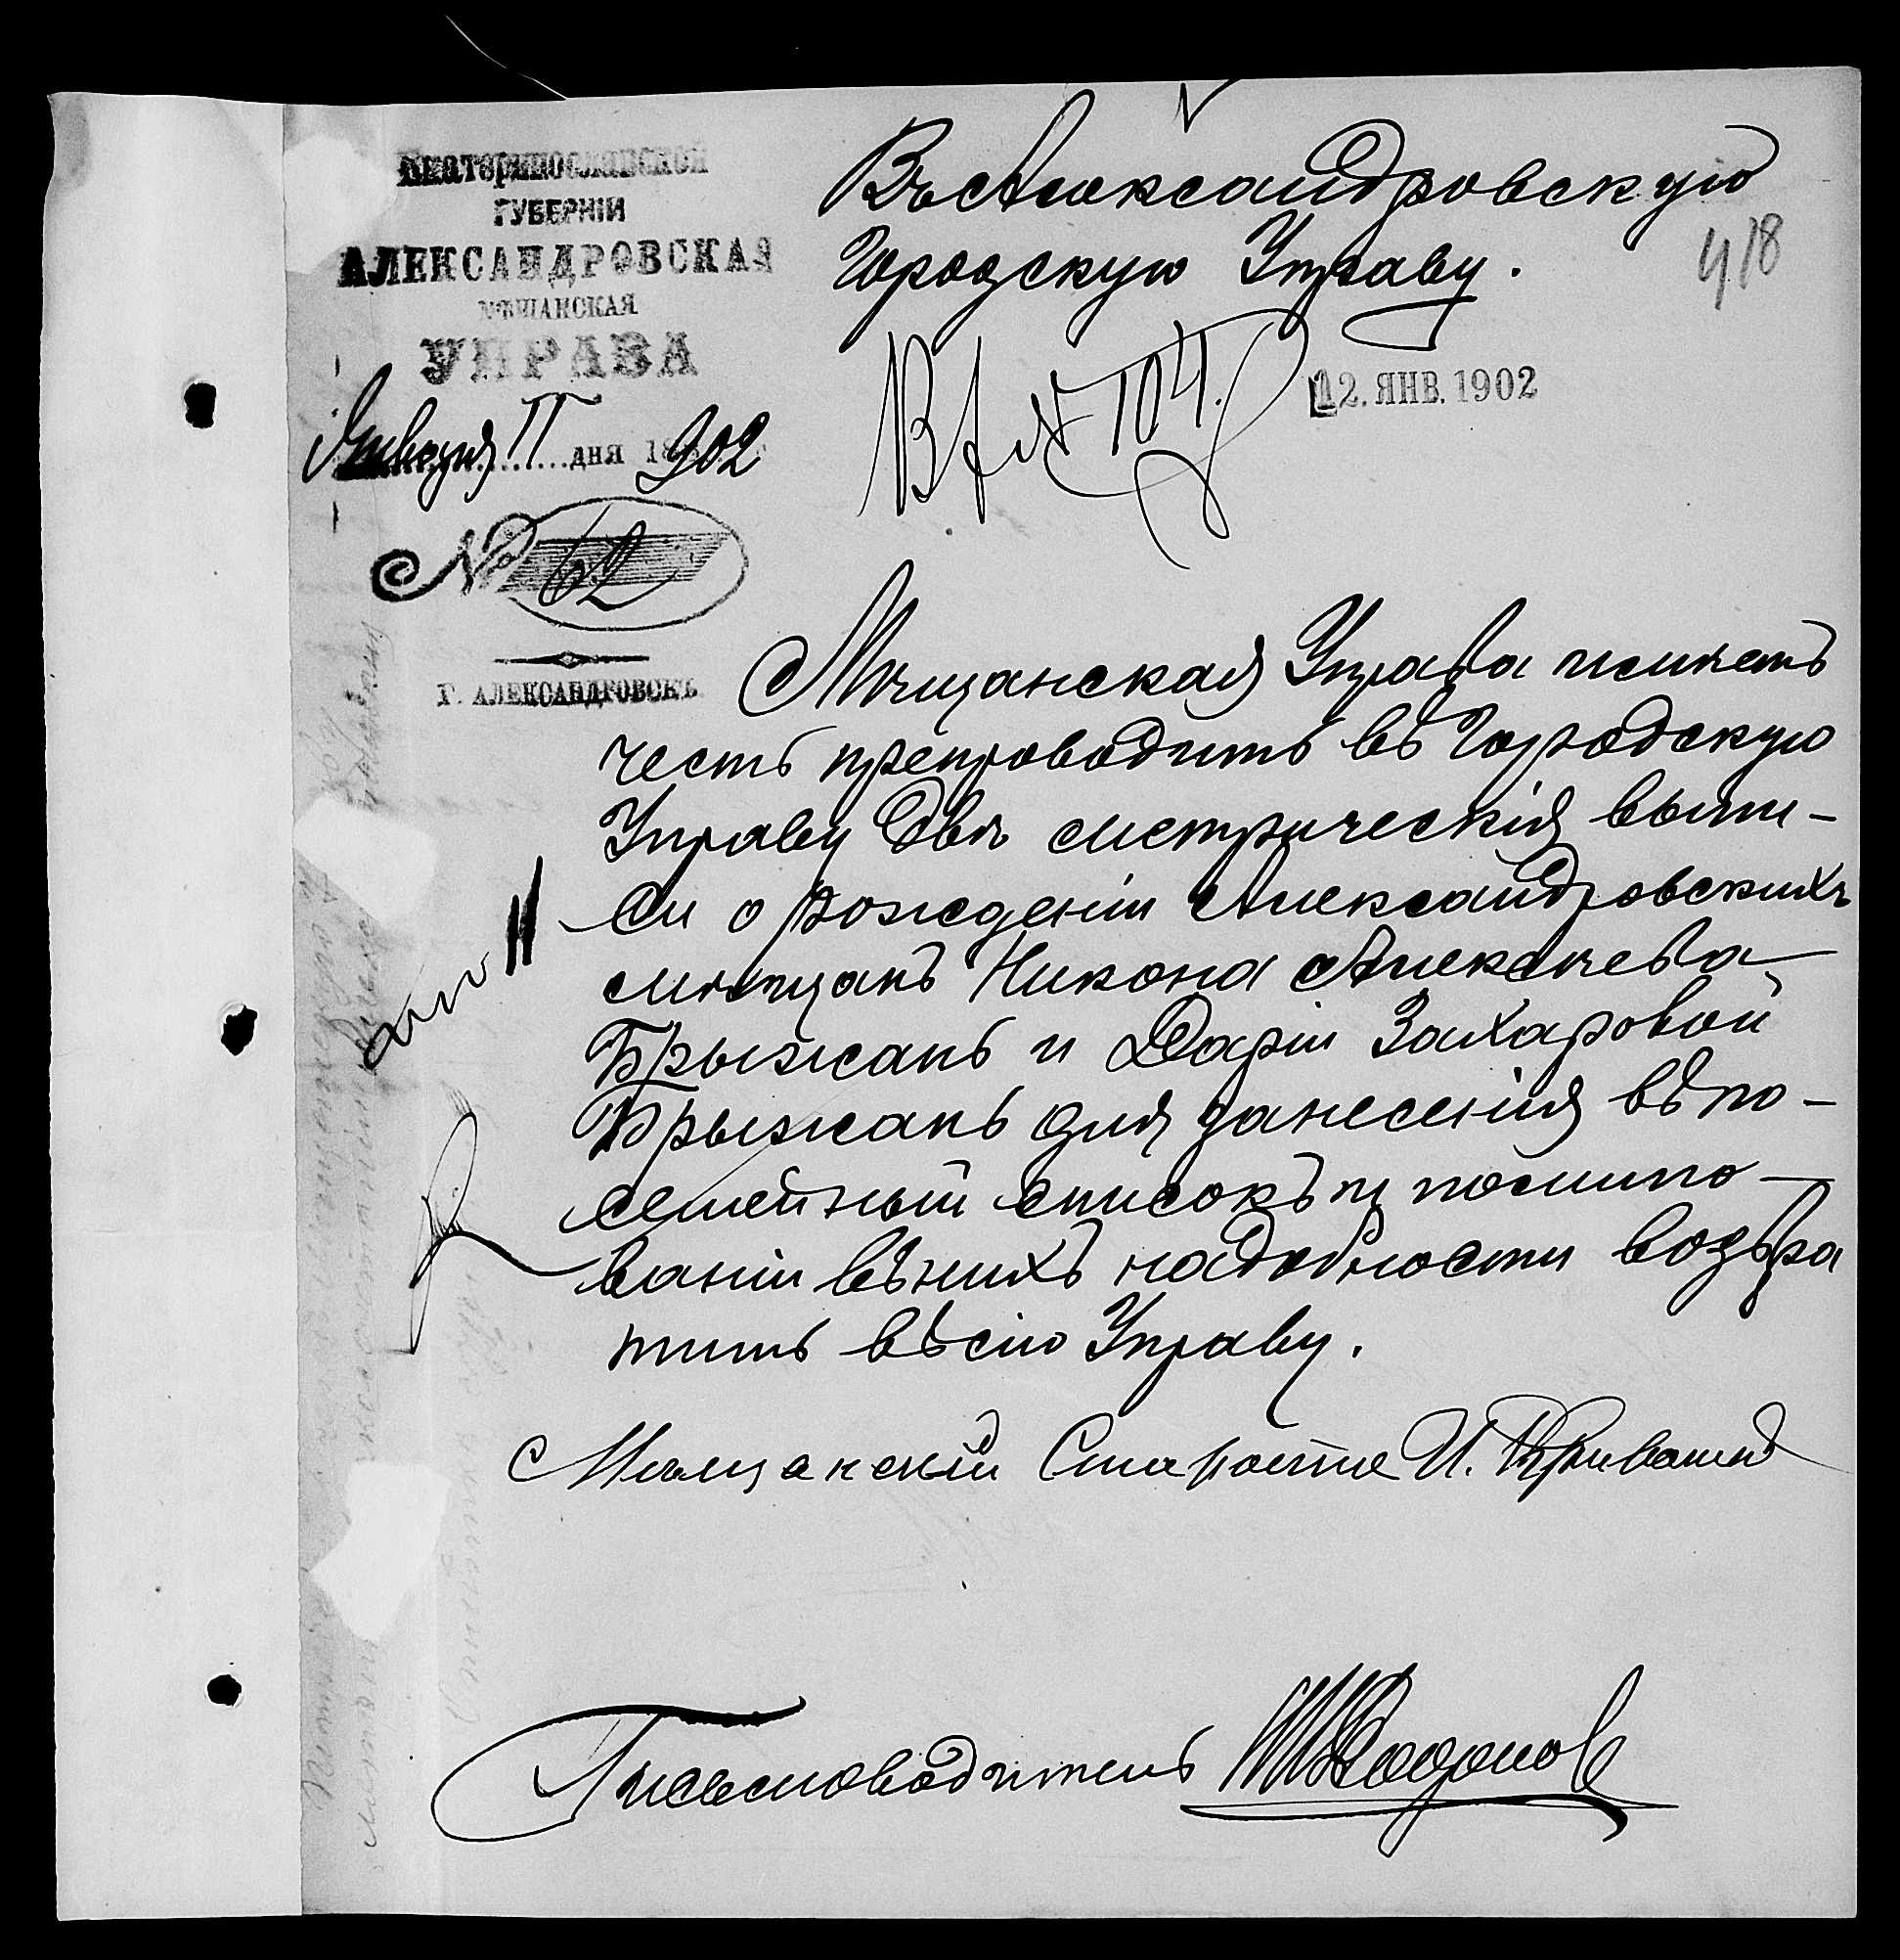 Екатеринославской
ГУБЕРНІИ
АЛЕКСАНДРОВСКАЯ
МѢЩАНСКАЯ
УПРАВА
Января 11 дня 1902
№ 62
Г. АЛЕКСАНДРОВСКЪ
Въ Александровскую
Городскую Управу.
418
12. ЯНВ. 1902
В № 104.
Мѣщанская Управа имѣетъ
честь препроводить въ Городскую
Управу двѣ метрическія выпи-
си о рожденіи Александровскихъ
мѣщанъ Никона Алексѣева
Брыжань и Даріи Захаровой
Брыжань для занесенія въ по-
семейный списокъ и помино-
ваніи въ нихъ надобности возвра
тить въ сію Управу.
Мѣщанскій Староста И.
Письмоводитель